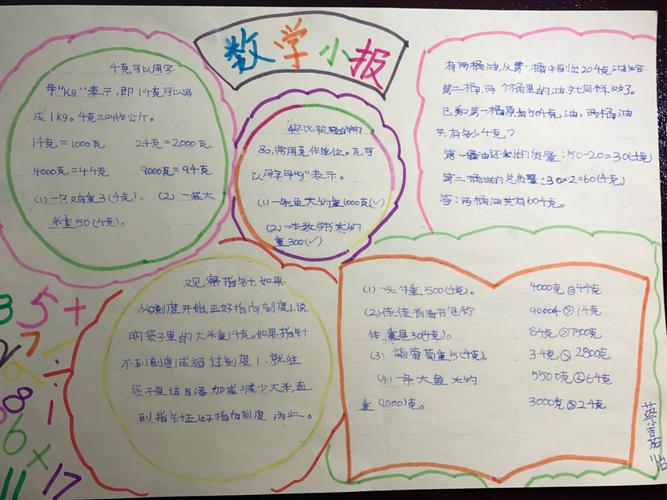 数学小报
千克可以用字
母“kg”表示，即1千克可以写
成1kg。千克又叫作公斤。
1千克=1000克 2千克=2000克
4000克=4千克 9000克=9千克
(1)一只鸡重3(千克)。 (2)一袋大
米重50(千克)。
称比较轻的物
品，常用克作单位。克可
以用字母“g”表示。
(1)一条鱼大约重1000克(√)
(2)一本数学书大约
重300(√)
有两桶油，从第一桶中倒出20千克油给
第二桶，两个桶里的油就同样多了。
已知第一桶原有50千克油，两桶油
共有多少千克？
第一桶油还剩的质量：50-20=30(千克)
第二桶油的总质量：30×2=60(千克)
答：两桶油共有60千克。
观察指针，如果
从0刻度开始，正好指向刻度1，说
明袋子里的大米重1千克。如果指针
不到刻度或超过刻度1，就往
袋子里适当添加或减少大米，直
到指针正好指向刻度1为止。
(1)一头牛重500(千克)。 4000克=4千克
(2)佳佳背着书包称 900克>1千克
体重是30(千克)。 8千克>7500克
(3)一箱葡萄重5(千克)。 3千克>2800克
(4)一条大鱼大约 5500克<6千克
重(2000)克。 3000克>2千克
3 5 +
2 7 ÷
9
8 1
6 ×
11 17